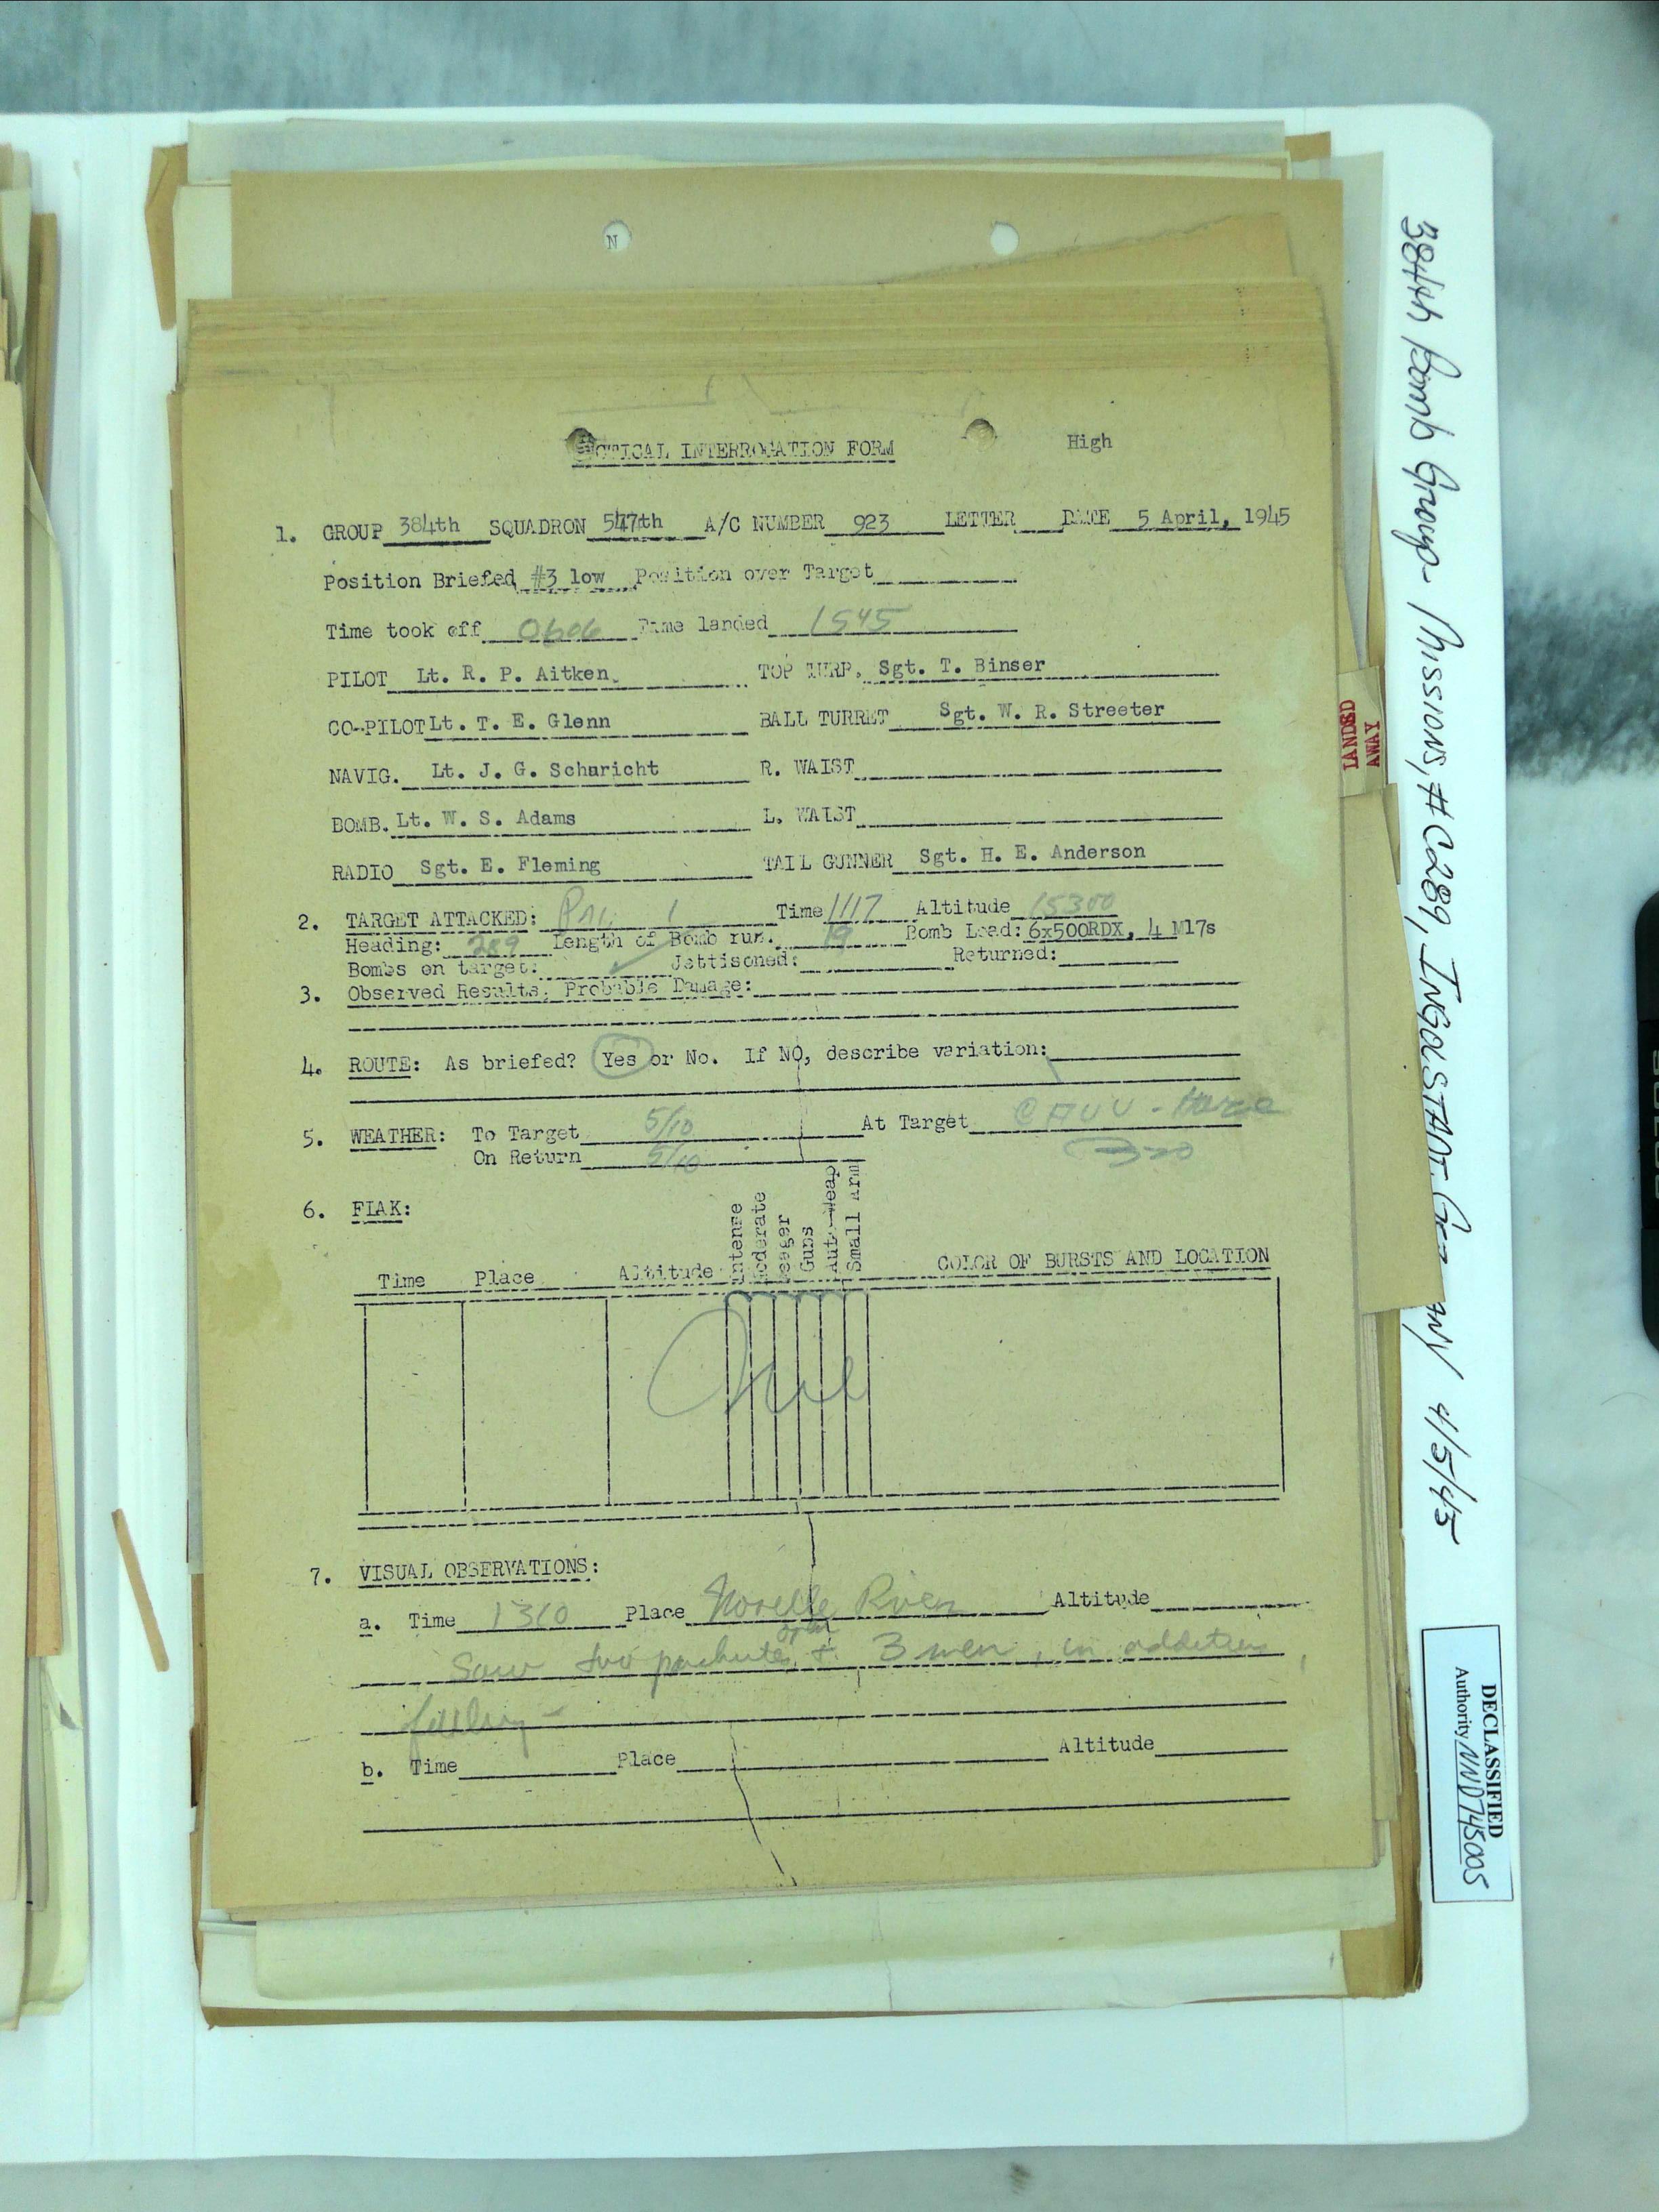 N
TACTICAL INTERROGATION FORM High
1. GROUP 384th SQUADRON 547th A/C NUMBER 923 LETTER DATE 5 April, 1945
Position Briefed #3 low Position over Target
Time took off 0606 Time landed 1545
PILOT Lt. R. P. Aitken. TOP TURR. Sgt. T. Binser
CO-PILOT Lt. T. E. Glenn BALL TURRET Sgt. W. R. Streeter
NAVIG. Lt. J. G. Scharicht R. WAIST
BOMB. Lt. W. S. Adams L. WAIST
RADIO Sgt. E. Fleming TAIL GUNNER Sgt. H. E. Anderson
2. TARGET ATTACKED: Time 1117 Altitude 15300
Heading: 289 Length of Bomb run. 19 Bomb Load: 6x500RDX, 4 M17s
Bombs on target: ✓ Jettisoned: Returned:
3. Observed Results, Probable Damage:
4. ROUTE: As briefed? Yes or No. If NO, describe variation:
5. WEATHER: To Target 5/10 At Target CAVU - haze
On Return 5/10
6. FLAK:
Intense
Moderate
Meager
Guns
Auto-Weap
Small arm
Time Place Altitude COLOR OF BURSTS AND LOCATION
7. VISUAL OBSERVATIONS:
a. Time 1310 Place River Altitude
open
Saw two pachutes & 3 men, in addition
falling -
b. Time Place Altitude
LANDED
AWAY
384th Bomb Group - Missions, # C289, INGOLSTADT, 4/5/45
DECLASSIFIED
Authority NND745005